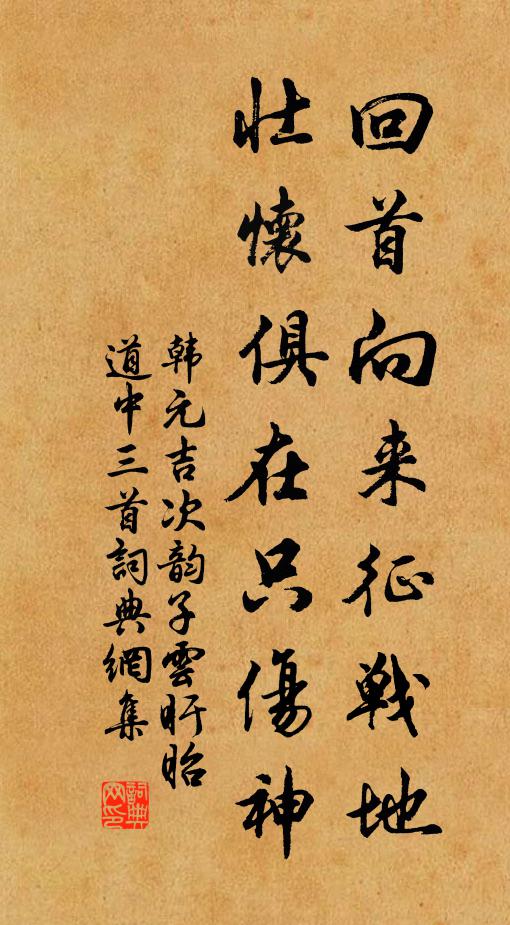 回首向来征戦地
壮懷俱在只傷神
韩元吉次韵子雲盱眙
道中三首詞典網集
詞典网印